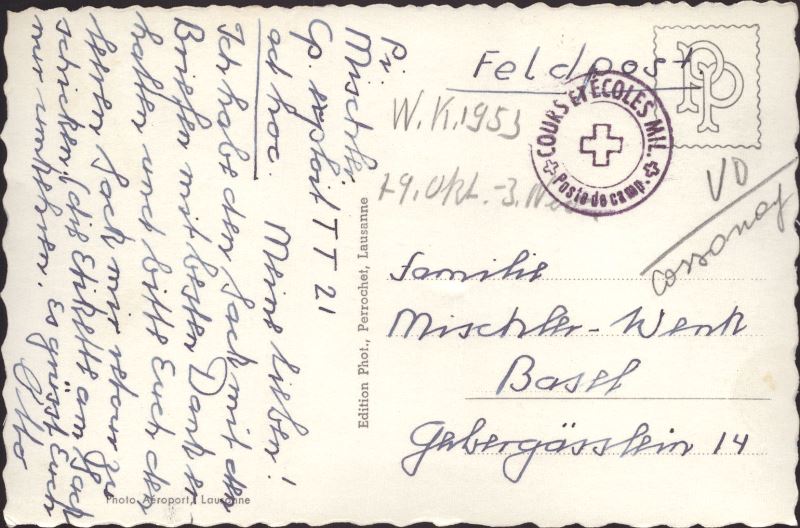 Pi.
Mischler
Cp exploit TT 21
ad hoc.
Meine lieben!
Ich habe den Sack mit den
Briefen mit bestem Dank er-
halten und bitte Euch den
leeren Sack mir retour zu
schicken. (die Etikette am Sack
nur umkehren. Es grüsst Euch
Otto
Photo Aéroport, Lausanne
Edition Phot., Perrochet, Lausanne
Feldpost
PP
COURS ET ÉCOLES MIL.
Poste de camp.
W.K. 1953
Okt. - 3.
VD
Cossonay
Familie
Mischler-Wenk
Basel
Gebergässlein 14